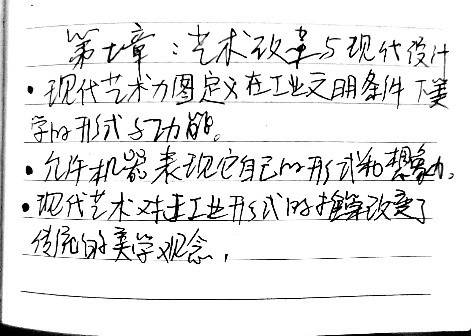 第七章：艺术改革与现代设计
·现代艺术力图定义在工业文明条件下美
学的形式与功能。
·允许机器表现它自己的形式和想象力。
·现代艺术对于工业形式的推崇改变了
传统的美学观念，